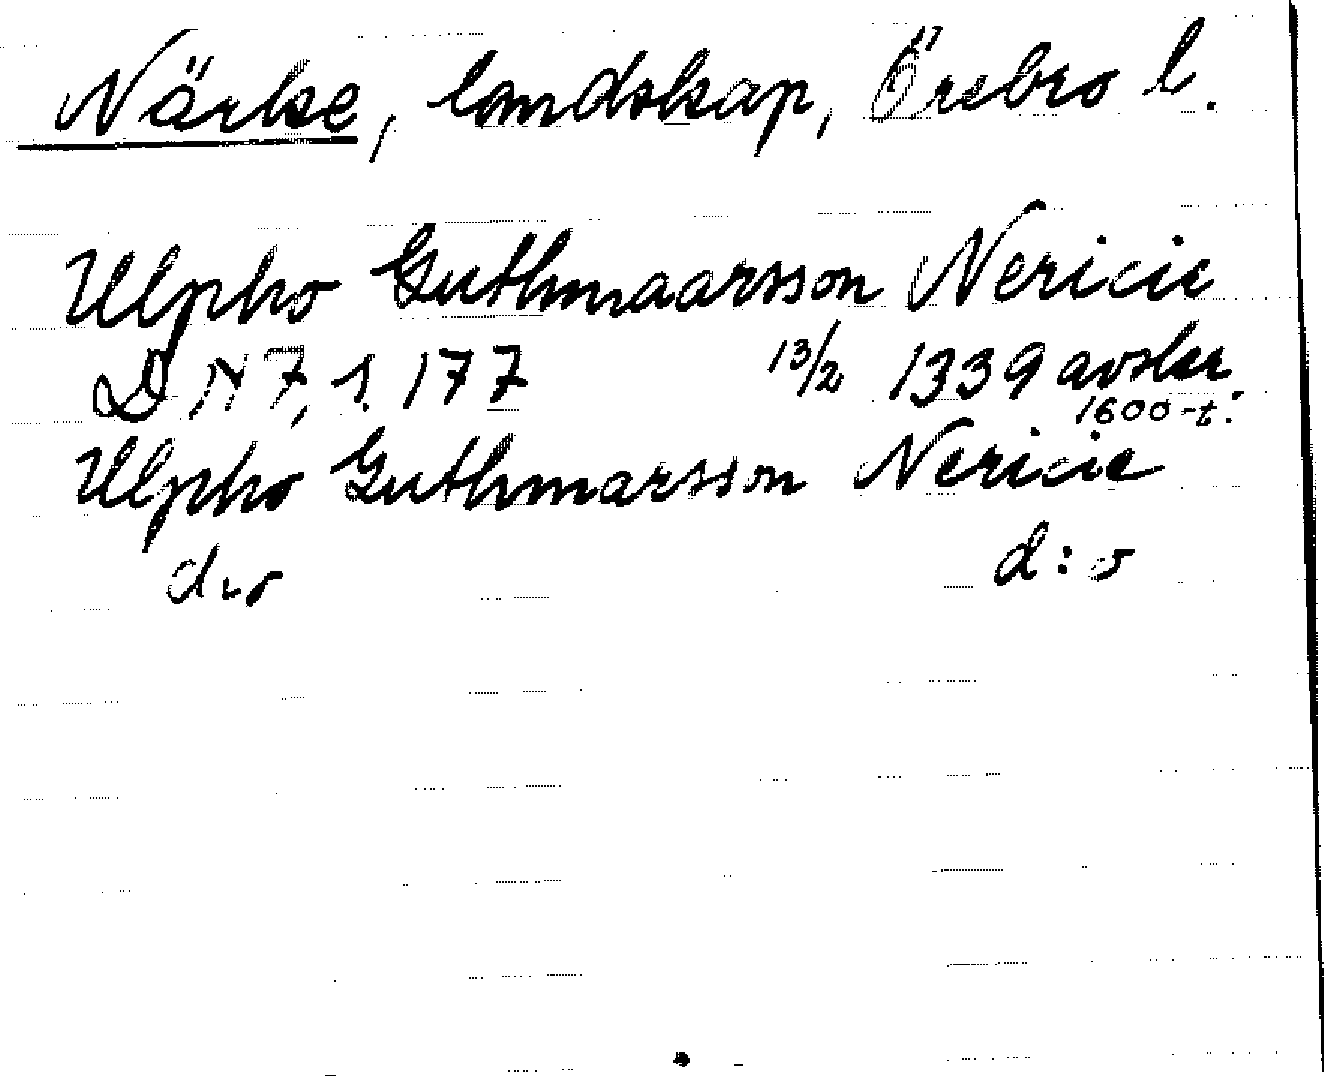 Närke, landskap, Örebro l.
Ulpho Guthmaarsson Nericie
DN 7, 1. 177 13/2 1339 avskr.
1600-t:
Ulpho Guthmarsson Nericie
d:o d:o